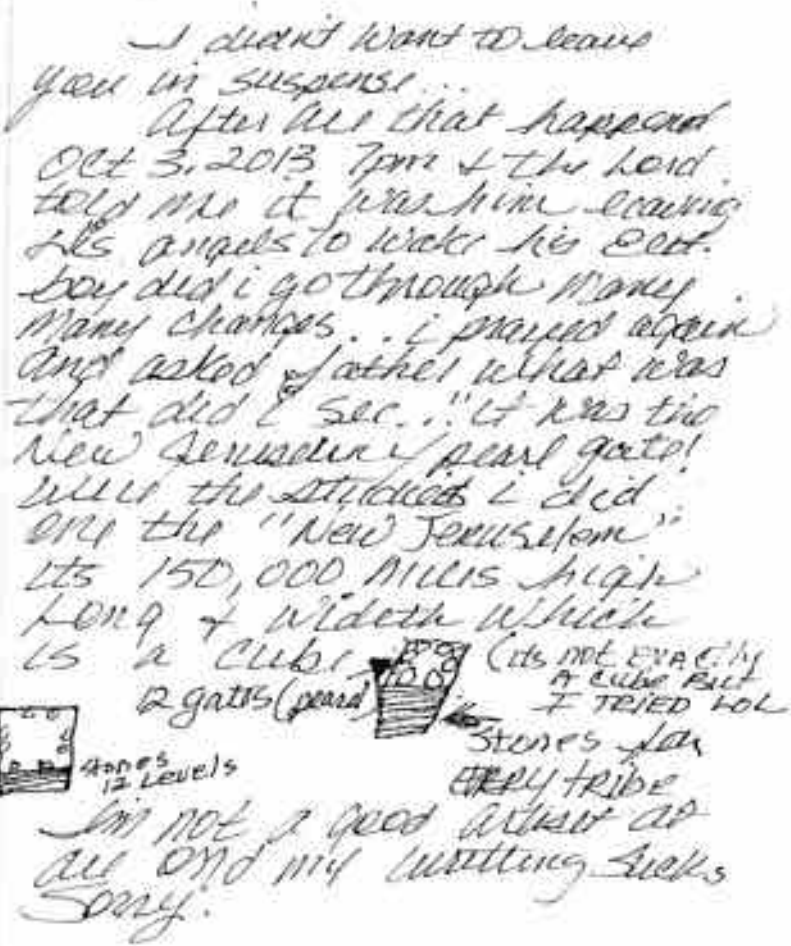 I didn't want to leave
you in suspense...
After all that happend
Oct 3, 2013 7pm & the Lord
told me it was him leaving
his angels to wake his Elect.
boy did i go through many
many changes... i prayed again
and asked father what was
that did i see.. "it was the
New Jerusalem / pearl gate!
the studies i did
one the "New Jerusalem"
its 150,000 miles high
Long & wideth which
is a cube (its not exactly
a cube But
I TRIED LOL
12 gates (pearl)
stones for
EVERY tribe
stones
12 Levels
I'm not a good artist at
all and my writting sucks
Sorry.